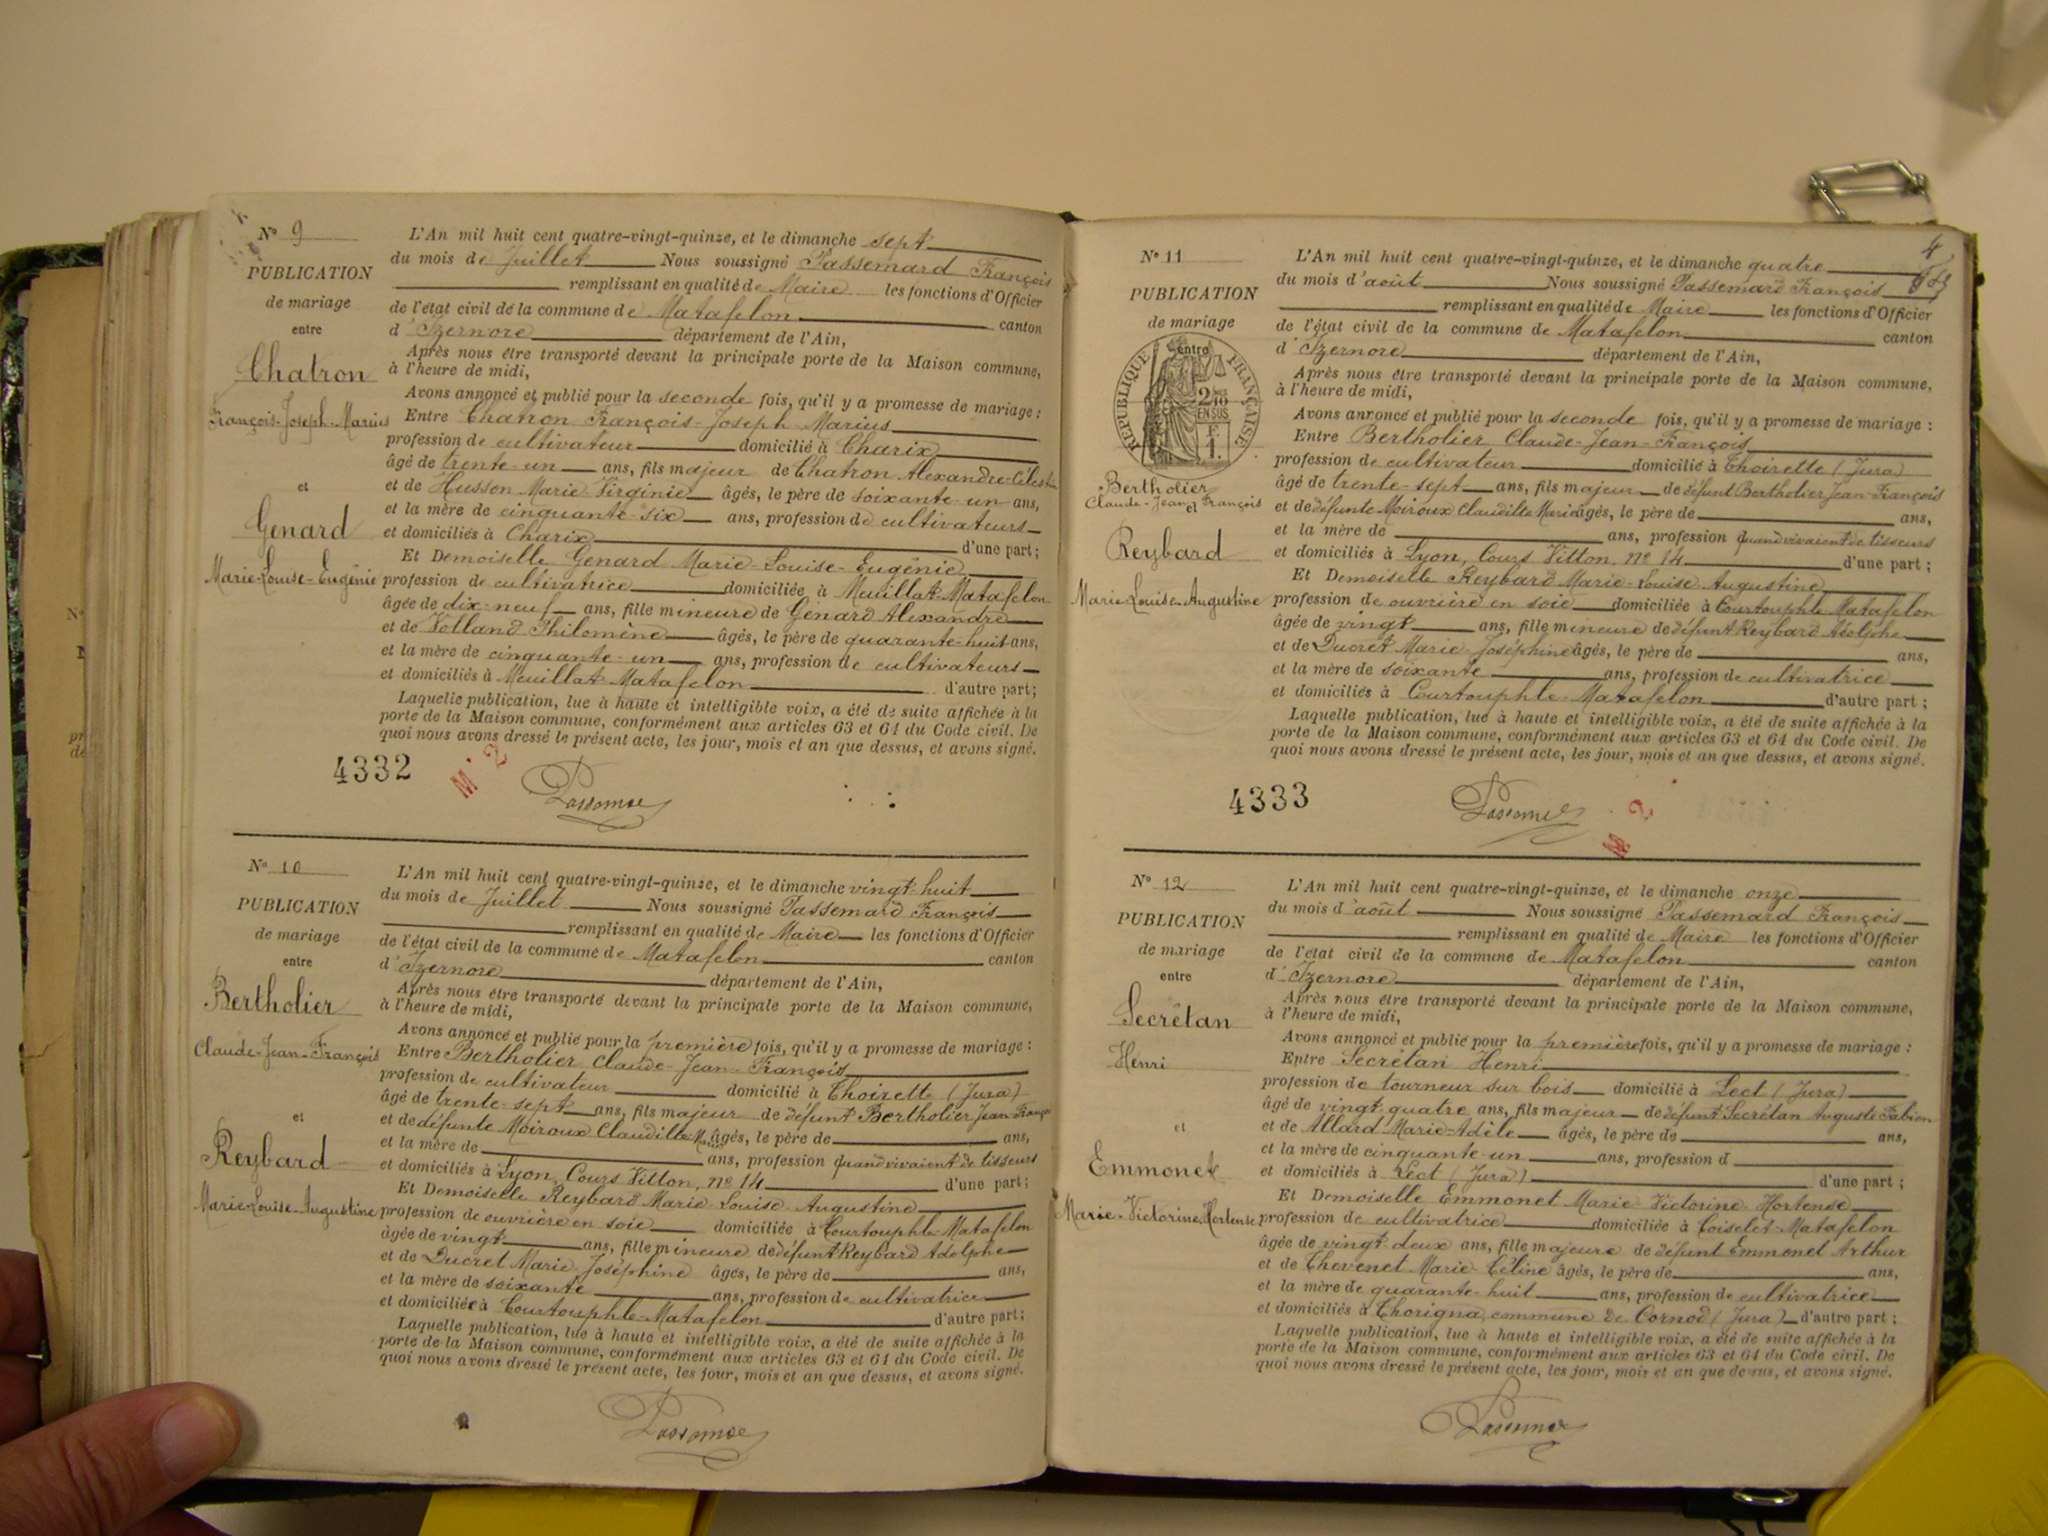 N° 9
PUBLICATION
de mariage
entre
Chatron
François-Joseph-Marius
et
Genard
Marie-Louise-Eugénie
L'An mil huit cent quatre-vingt-quinze, et le dimanche sept
du mois de Juillet Nous soussigné Passemard François
remplissant en qualité de Maire les fonctions d'Officier
de l'état civil de la commune de Matafelon canton
d'Izernore département de l'Ain,
Après nous être transporté devant la principale porte de la Maison commune,
à l'heure de midi,
Avons annoncé et publié pour la seconde fois, qu'il y a promesse de mariage :
Entre Chatron François-Joseph-Marius
profession de cultivateur domicilié à Charix
âgé de trente-un ans, fils majeur de Chatron Alexandre-Célestin
et de Husson Marie-Virginie âgés, le père de soixante-un ans,
et la mère de cinquante-six ans, profession de cultivateurs
et domiciliés à Charix d'une part ;
Et Demoiselle Genard Marie-Louise-Eugénie
profession de cultivatrice domiciliée à Meuillat-Matafelon
âgée de dix-neuf ans, fille mineure de Genard Alexandre
et de Volland Philomène âgés, le père de quarante-huit ans,
et la mère de cinquante-un ans, profession de cultivateurs
et domiciliés à Meuillat-Matafelon d'autre part ;
Laquelle publication, lue à haute et intelligible voix, a été de suite affichée à la
porte de la Maison commune, conformément aux articles 63 et 64 du Code civil. De
quoi nous avons dressé le présent acte, les jour, mois et an que dessus, et avons signé.
4332
M. 2
N° 10
PUBLICATION
de mariage
entre
Bertholier
Claude-Jean-François
et
Reybard
Marie-Louise-Augustine
L'An mil huit cent quatre-vingt-quinze, et le dimanche vingt-huit
du mois de Juillet Nous soussigné Passemard François
remplissant en qualité de Maire les fonctions d'Officier
de l'état civil de la commune de Matafelon canton
d'Izernore département de l'Ain,
Après nous être transporté devant la principale porte de la Maison commune,
à l'heure de midi,
Avons annoncé et publié pour la première fois, qu'il y a promesse de mariage :
Entre Bertholier Claude-Jean-François
profession de cultivateur domicilié à Thoirette (Jura)
âgé de trente-sept ans, fils majeur de défunt Bertholier Jean-François
et de défunte Moiroux Claudille Marie âgés, le père de ans,
et la mère de ans, profession quand vivaient de tisseurs
et domiciliés à Lyon, Cours Vitton, n° 14 d'une part ;
Et Demoiselle Reybard Marie-Louise-Augustine
profession de ouvrière en soie domiciliée à Courtouphle-Matafelon
âgée de vingt ans, fille mineure de défunt Reybard Adolphe
et de Ducret Marie-Joséphine âgés, le père de ans,
et la mère de soixante ans, profession de cultivatrice
et domiciliée à Courtouphle-Matafelon d'autre part ;
Laquelle publication, lue à haute et intelligible voix, a été de suite affichée à la
porte de la Maison commune, conformément aux articles 63 et 64 du Code civil. De
quoi nous avons dressé le présent acte, les jour, mois et an que dessus, et avons signé.
4
N° 11
PUBLICATION
de mariage
entre
RÉPUBLIQUE FRANÇAISE
2/10 EN SUS
F. 1.
Bertholier
Claude-Jean-François
et
Reybard
Marie-Louise-Augustine
L'An mil huit cent quatre-vingt-quinze, et le dimanche quatre
du mois d'août Nous soussigné Passemard François
remplissant en qualité de Maire les fonctions d'Officier
de l'état civil de la commune de Matafelon canton
d'Izernore département de l'Ain,
Après nous être transporté devant la principale porte de la Maison commune,
à l'heure de midi,
Avons annoncé et publié pour la seconde fois, qu'il y a promesse de mariage :
Entre Bertholier Claude-Jean-François
profession de cultivateur domicilié à Thoirette (Jura)
âgé de trente-sept ans, fils majeur de défunt Bertholier Jean-François
et de défunte Moiroux Claudille Marie âgés, le père de ans,
et la mère de ans, profession quand vivaient de tisseurs
et domiciliés à Lyon, Cours Vitton, n° 14 d'une part ;
Et Demoiselle Reybard Marie-Louise-Augustine
profession de ouvrière en soie domiciliée à Courtouphle-Matafelon
âgée de vingt ans, fille mineure de défunt Reybard Adolphe
et de Ducret Marie-Joséphine âgés, le père de ans,
et la mère de soixante ans, profession de cultivatrice
et domiciliés à Courtouphle-Matafelon d'autre part ;
Laquelle publication, lue à haute et intelligible voix, a été de suite affichée à la
porte de la Maison commune, conformément aux articles 63 et 64 du Code civil. De
quoi nous avons dressé le présent acte, les jour, mois et an que dessus, et avons signé.
4333
M. 2
N° 12
PUBLICATION
de mariage
entre
Secrétan
Henri
et
Emmonet
Marie-Victorine-Hortense
L'An mil huit cent quatre-vingt-quinze, et le dimanche onze
du mois d'août Nous soussigné Passemard François
remplissant en qualité de Maire les fonctions d'Officier
de l'état civil de la commune de Matafelon canton
d'Izernore département de l'Ain,
Après nous être transporté devant la principale porte de la Maison commune,
à l'heure de midi,
Avons annoncé et publié pour la première fois, qu'il y a promesse de mariage :
Entre Secrétan Henri
profession de tourneur sur bois domicilié à Lect (Jura)
âgé de vingt-quatre ans, fils majeur de défunt Secrétan Auguste Fabien
et de Allard Marie-Adèle âgés, le père de ans,
et la mère de cinquante-un ans, profession d
et domiciliés à Lect (Jura) d'une part ;
Et Demoiselle Emmonet Marie-Victorine-Hortense
profession de cultivatrice domiciliée à Coiselet-Matafelon
âgée de vingt-deux ans, fille majeure de défunt Emmonet Arthur
et de Thevenet Marie-Céline âgés, le père de ans,
et la mère de quarante-huit ans, profession de cultivatrice
et domiciliés à Thorigna, commune de Cornod (Jura) d'autre part ;
Laquelle publication, lue à haute et intelligible voix, a été de suite affichée à la
porte de la Maison commune, conformément aux articles 63 et 64 du Code civil. De
quoi nous avons dressé le présent acte, les jour, mois et an que dessus, et avons signé.